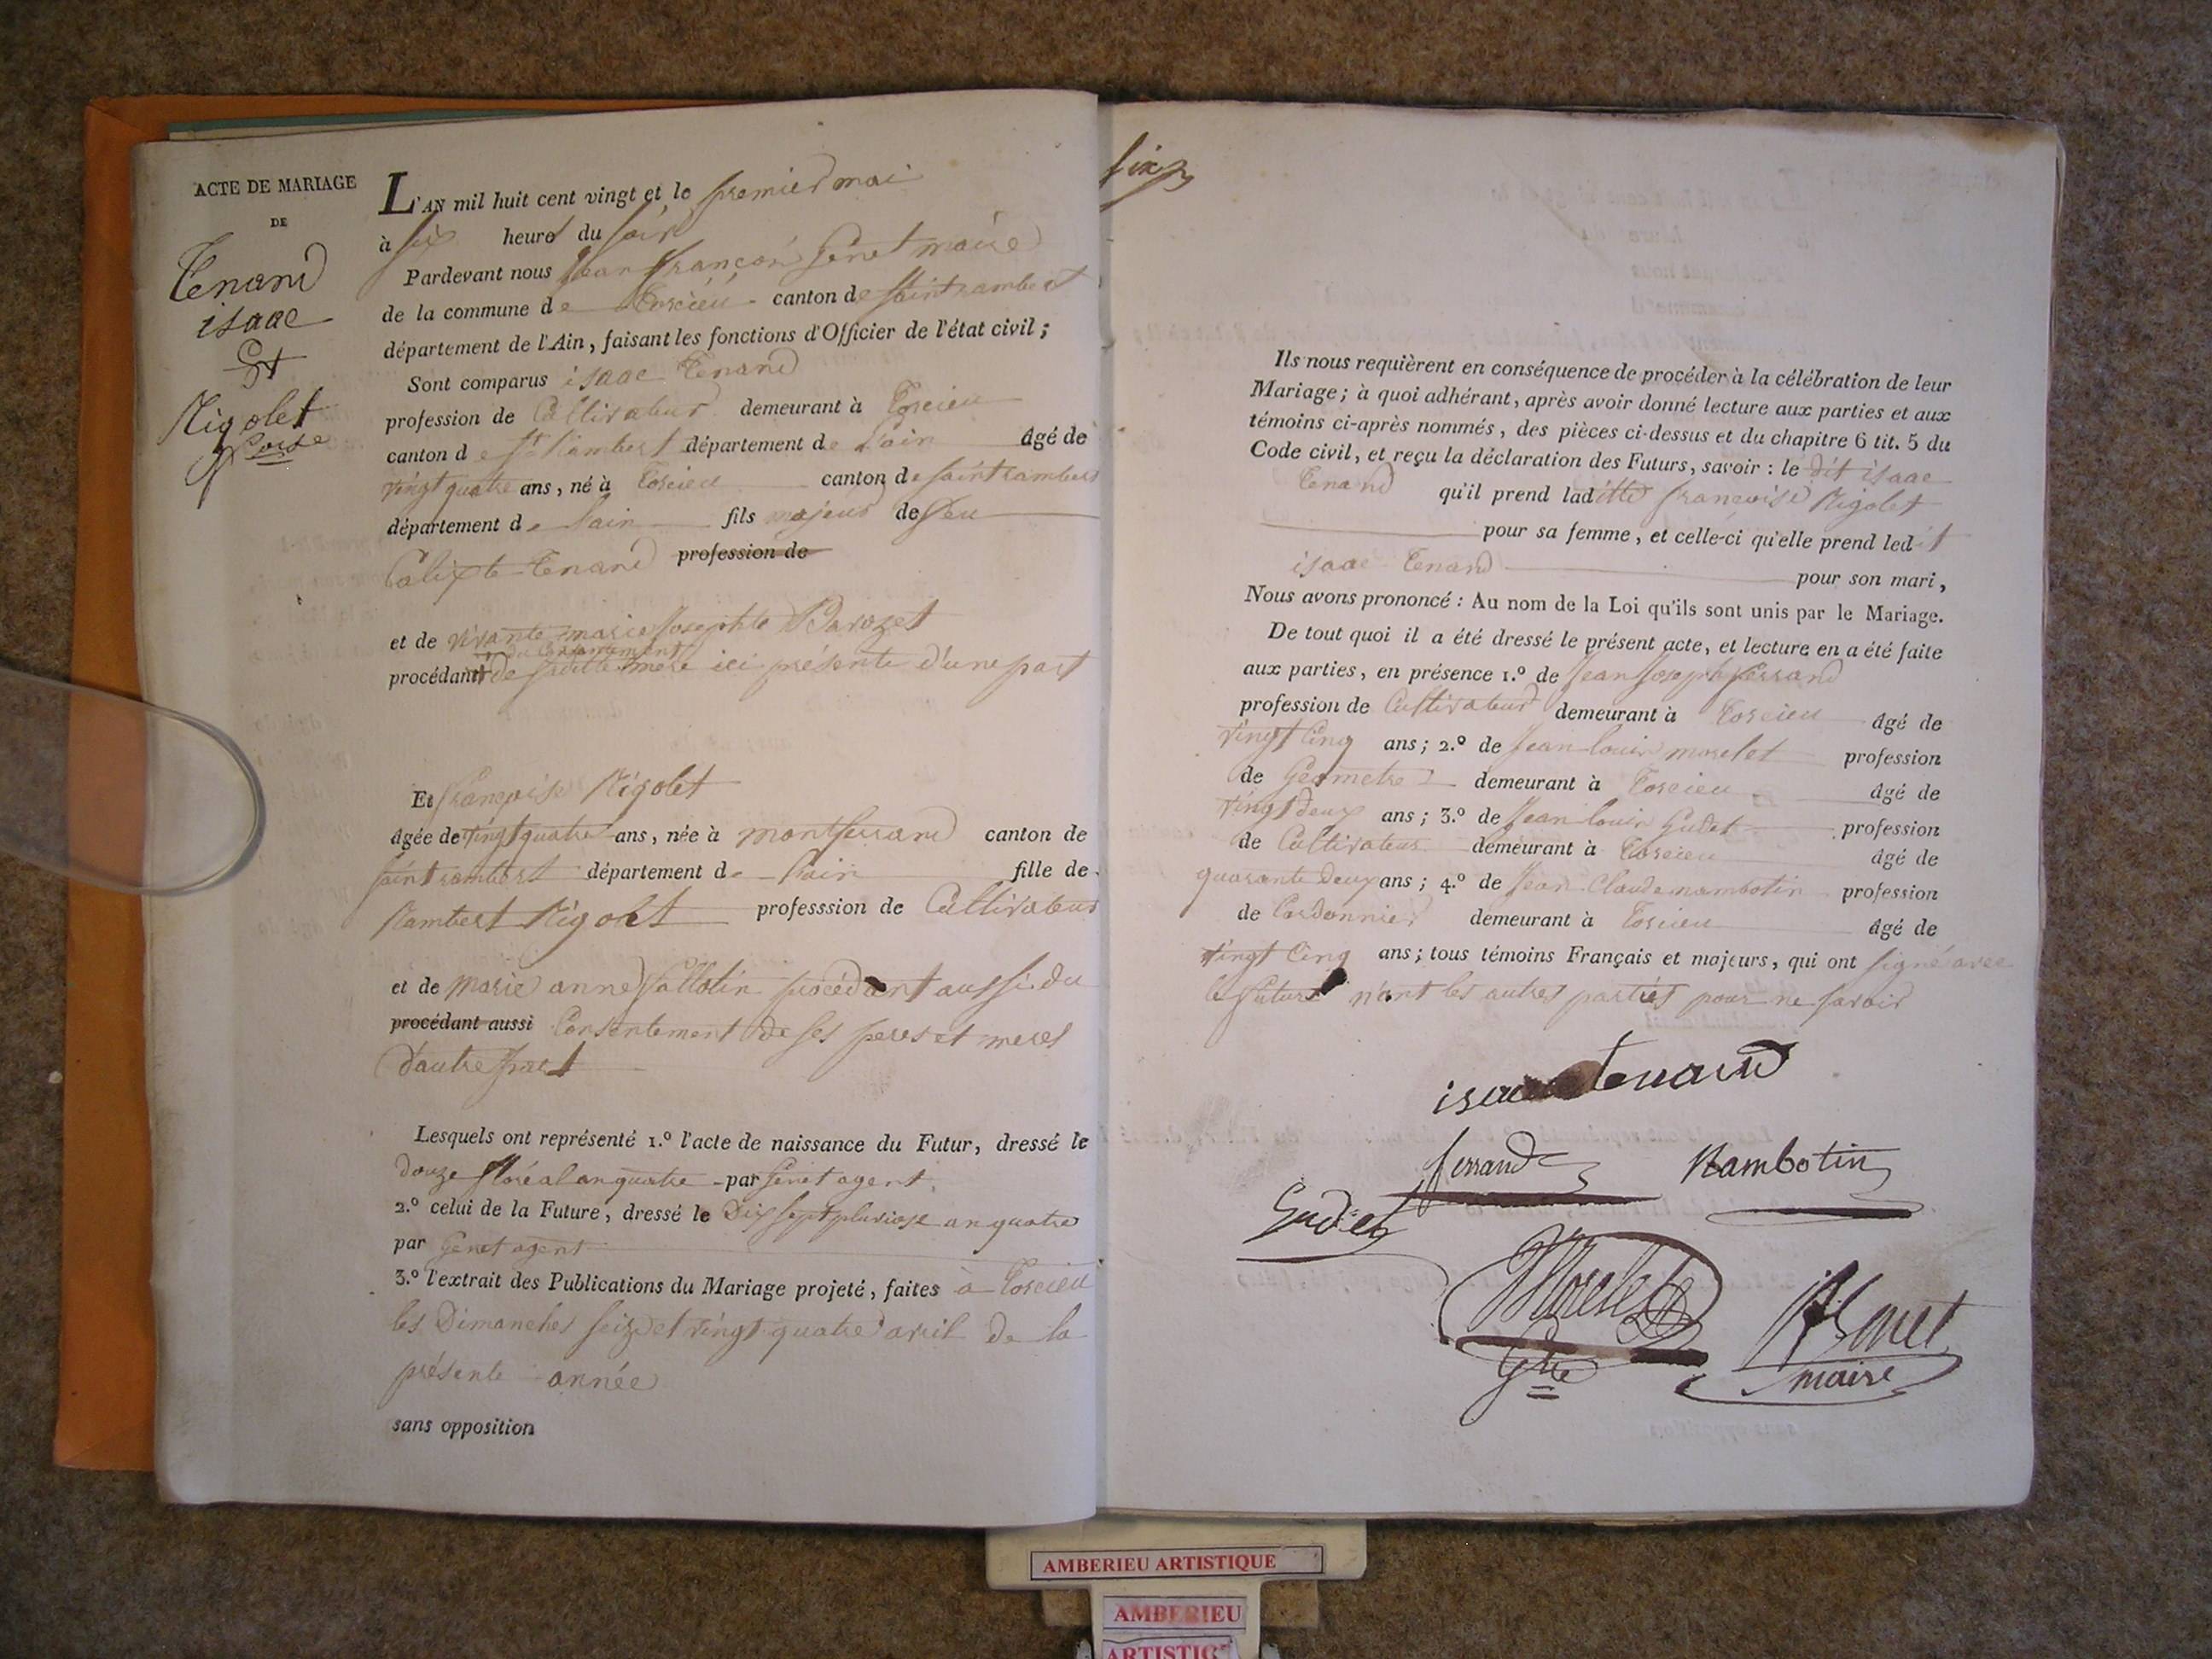 ACTE DE MARIAGE
DE
Tenand
isaac
Et
Rigolet
L'AN mil huit cent vingt et le premier mai
à six heures du soir
Pardevant nous Jean françois Genet maire
de la commune de Torcieu canton de Saint rambert
département de l'Ain, faisant les fonctions d'Officier de l'état civil;
Sont comparus isaac Tenand
profession de Cultivateur demeurant à Torcieu
canton de St Rambert département de L'ain âgé de
vingt quatre ans, né à Torcieu canton de saint rambert
département de L'ain fils majeur de feu
Calixte Tenand profession de
et de vivante marie Josephte Barozet
du Consentement
procédant de sadite mere ici présente d'une part
Et françoise Rigolet
âgée de vingt quatre ans, née à montferrand canton de
saint rambert département de L'ain fille de
Rambert Rigolet professsion de Cultivateur
et de Marie anne procédant aussi du
procédant aussi Consentement de ses peres et meres
d'autre part
Lesquels ont représenté 1.º l'acte de naissance du Futur, dressé le
douze floréal an quatre par Genet agent
2.º celui de la Future, dressé le Dix sept pluviose an quatre
par Genet agent
3.º l'extrait des Publications du Mariage projeté, faites à Torcieu
les Dimanches seize et vingt quatre avril de la
présente année
sans opposition
six
Ils nous requièrent en conséquence de procéder à la célébration de leur
Mariage; à quoi adhérant, après avoir donné lecture aux parties et aux
témoins ci-après nommés, des pièces ci-dessus et du chapitre 6 tit. 5 du
Code civil, et reçu la déclaration des Futurs, savoir: le dit isaac
Tenand qu'il prend laditte françoise Rigolet
pour sa femme, et celle-ci qu'elle prend ledit
isaac Tenand pour son mari,
Nous avons prononcé: Au nom de la Loi qu'ils sont unis par le Mariage.
De tout quoi il a été dressé le présent acte, et lecture en a été faite
aux parties, en présence 1.º de Jean Joseph ferrand
profession de Cultivateur demeurant à Torcieu âgé de
vingt Cinq ans; 2.º de Jean louis morelet profession
de Géometre demeurant à Torcieu âgé de
vingt deux ans; 3.º de Jean louis Gudet profession
de Cultivateur demeurant à Torcieu âgé de
quarante deux ans; 4.º de Jean Claude nambotin profession
de Cordonnier demeurant à Torcieu âgé de
vingt Cinq ans; tous témoins Français et majeurs, qui ont signé avec
le futur n'ont les autres parties pour ne savoir
isaac tenand
ferrand Nambotin
Gudet
Morelet
Gtre
Genet
maire
AMBERIEU ARTISTIQUE
AMBERIEU